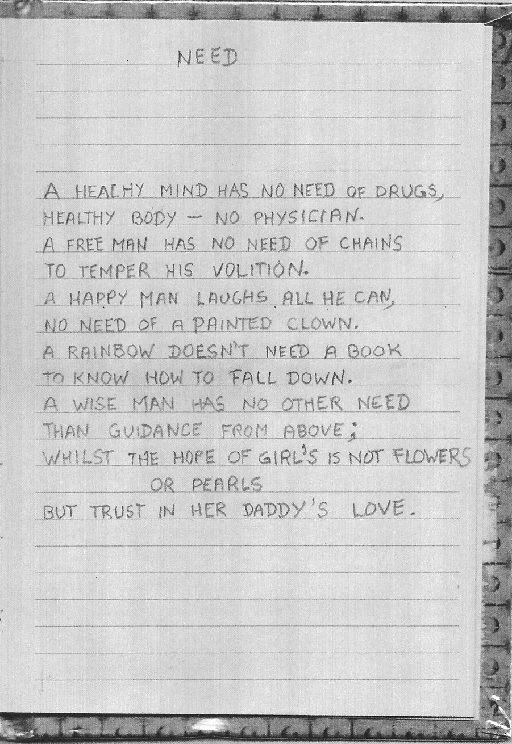 NEED
A HEALHY MIND HAS NO NEED OF DRUGS,
HEALTHY BODY – NO PHYSICIAN.
A FREE MAN HAS NO NEED OF CHAINS
TO TEMPER HIS VOLITION.
A HAPPY MAN LAUGHS ALL HE CAN,
NO NEED OF A PAINTED CLOWN.
A RAINBOW DOESN'T NEED A BOOK
TO KNOW HOW TO FALL DOWN.
A WISE MAN HAS NO OTHER NEED
THAN GUIDANCE FROM ABOVE;
WHILST THE HOPE OF GIRL'S IS NOT FLOWERS
OR PEARLS
BUT TRUST IN HER DADDY'S LOVE.